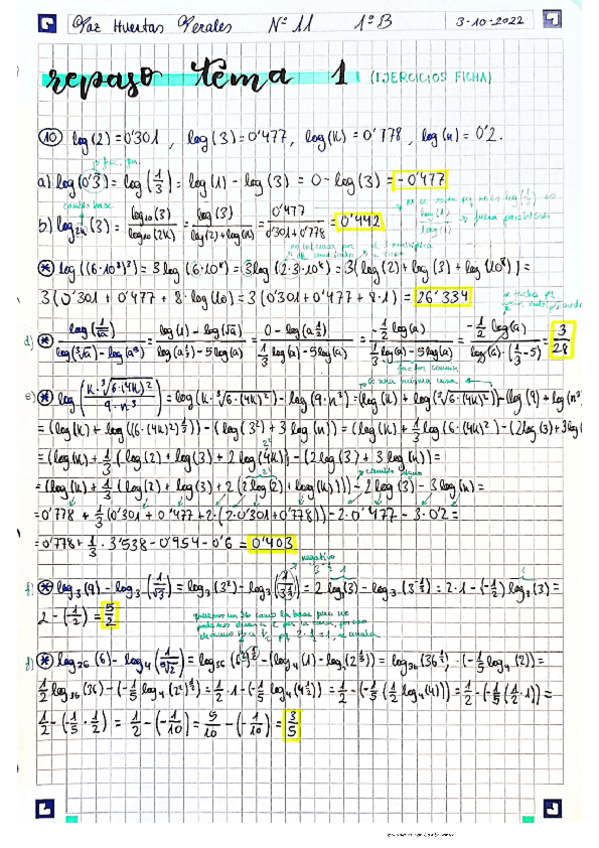 Paz Huertas Perales Nº 11 1º B 3-10-2022
repaso tema 1 (EJERCICIOS FICHA)
10 log(2) = 0'301 , log(3) = 0'477, log(k) = 0'778, log(n) = 0'2.
a) log(0'3) = log(1/3) = log(1) - log(3) = 0 - log(3) = -0'477
cambio base
b) log_2k (3) = log₁₀(3)/log₁₀(2k) = log(3)/(log(2)+log(k)) = 0'477/(0'301+0'778) = 0'442
* log((6·10⁸)³) = 3 log(6·10⁸) = 3 log(2·3·10⁸) = 3(log(2) + log(3) + log(10⁸)) =
3(0'301 + 0'477 + 8·log(10)) = 3(0'301 + 0'477 + 8·1) = 26'334
d) * log(1/√a)/(log(³√a) - log(a⁵)) = (log(1) - log(√a))/(log(a^1/3) - 5log(a)) = (0 - log(a^1/2))/(1/3 log(a) - 5log(a)) = (-1/2 log(a))/(1/3 log(a) - 5log(a)) = (-1/2 log(a))/(log(a)·(1/3 - 5)) = 3/28
factor común
e) * log(k·³√6·(4k)²/9·n³) = log(k·³√6·(4k)²) - log(9·n³) = (log(k) + log(³√6·(4k)²)) - (log(9) + log(n³
= (log(k) + log((6·(4k)²)^1/3)) - (log(3²) + 3 log(n)) = (log(k) + 1/3 log(6·(4k)²) - (2log(3) + 3log(
= (log(k) + 1/3 (log(2) + log(3) + 2 log(4k))) - (2 log(3) + 3 log(n)) =
2²
cambio signo
= (log(k) + 1/3 (log(2) + log(3) + 2(2 log(2) + log(k)))) - 2 log(3) - 3 log(n) =
= 0'778 + 1/3 (0'301 + 0'477 + 2·(2·0'301 + 0'778)) - 2·0'477 - 3·0'2 =
= 0'778 + 1/3 · 3'538 - 0'954 - 0'6 = 0'403
negativo
f) * log₃(9) - log₃(1/√3) = log₃(3²) - log₃(1/3^1/2) = 2 log₃(3) - log₃(3^-1/2) = 2·1 - (-1/2) log₃(3) =
2 - (-1/2) = 5/2
* log₃₆(6) - log₄(1/⁵√2) = log₃₆(6²)^1/2 - (log₄(1) - log₄(2^1/5)) = log₃₆(36^1/2) · (-1/5 log₄(2)) =
1/2 log₃₆(36) - (-1/5 log₄(2²)^1/2) = 1/2·1 - (-1/5 log₄(4^1/2)) = 1/2 - (-1/5 (1/2 log₄(4))) = 1/2 - (-1/5 (1/2·1)) =
1/2 - (-1/5 · 1/2) = 1/2 - (-1/10) = 5/10 - (-1/10) = 3/5